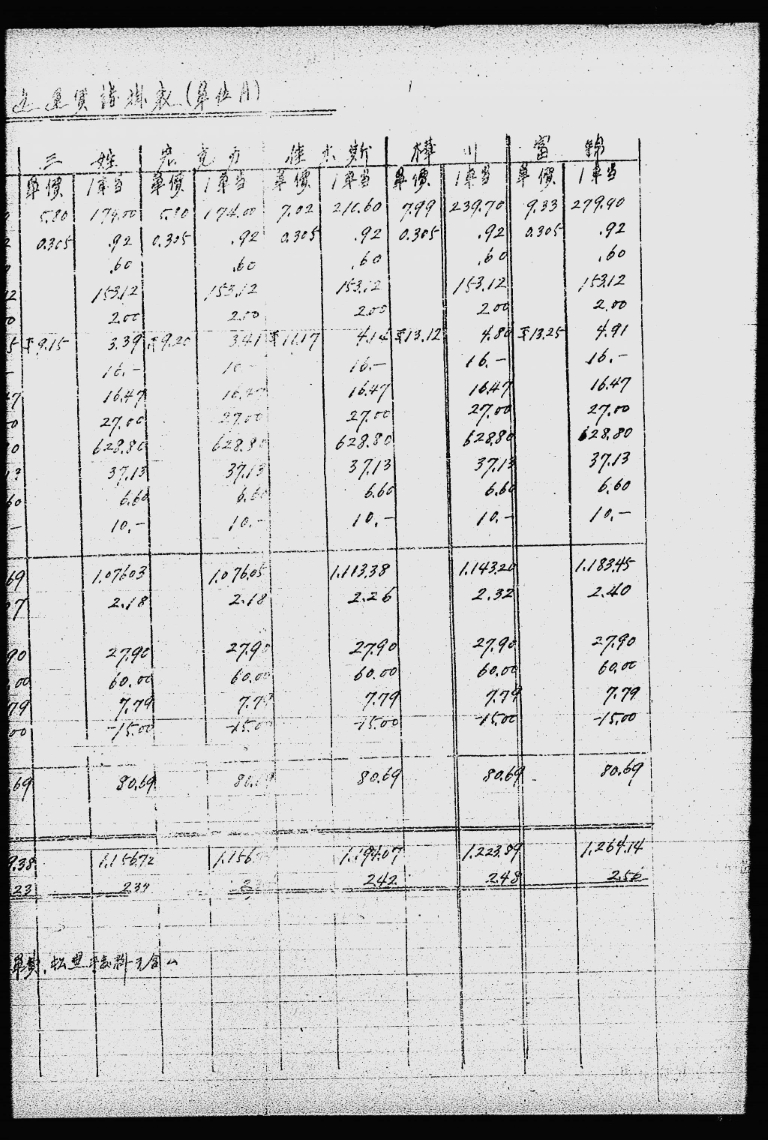 運賃諸掛表(單位円)
三姓 宏克力 佳木斯 樺川 富錦
單價 1車当 單價 1車当 單價 1車当 單價 1車当 單價 1車当
5.80 174.00 5.80 174.00 7.02 210.60 7.99 239.70 9.33 279.90
0.305 .92 0.305 .92 0.305 .92 0.305 .92 0.305 .92
.60 .60 .60 .60 .60
153.12 153.12 153.12 153.12 153.12
2.00 2.00 2.00 2.00 2.00
9.15 3.39 9.20 3.41 11.17 4.14 13.12 4.80 13.25 4.91
16.- 10.- 16.- 16.- 16.-
16.47 16.47 16.47 16.47
27.00 27.00 27.00 27.00 27.00
628.80 628.80 628.80 628.80 628.80
37.13 37.13 37.13 37.13 37.13
6.60 6.60 6.60 6.60 6.60
10.- 10.- 10.- 10.- 10.-
69 1.076.03 1.076.05 1.113.38 1.143.20 1.183.45
2.18 2.18 2.26 2.32 2.40
90 27.90 27.90 27.90 27.90 27.90
00 60.00 60.00 60.00 60.00 60.00
79 7.79 7.79 7.79 7.79 7.79
00 -15.00 -15.00 -15.00 -15.00 -15.00
69 80.69 80.69 80.69 80.69 80.69
9.38 1.156.72 1.156 1.194.07 1.223.89 1.264.14
23 234 242 248 256